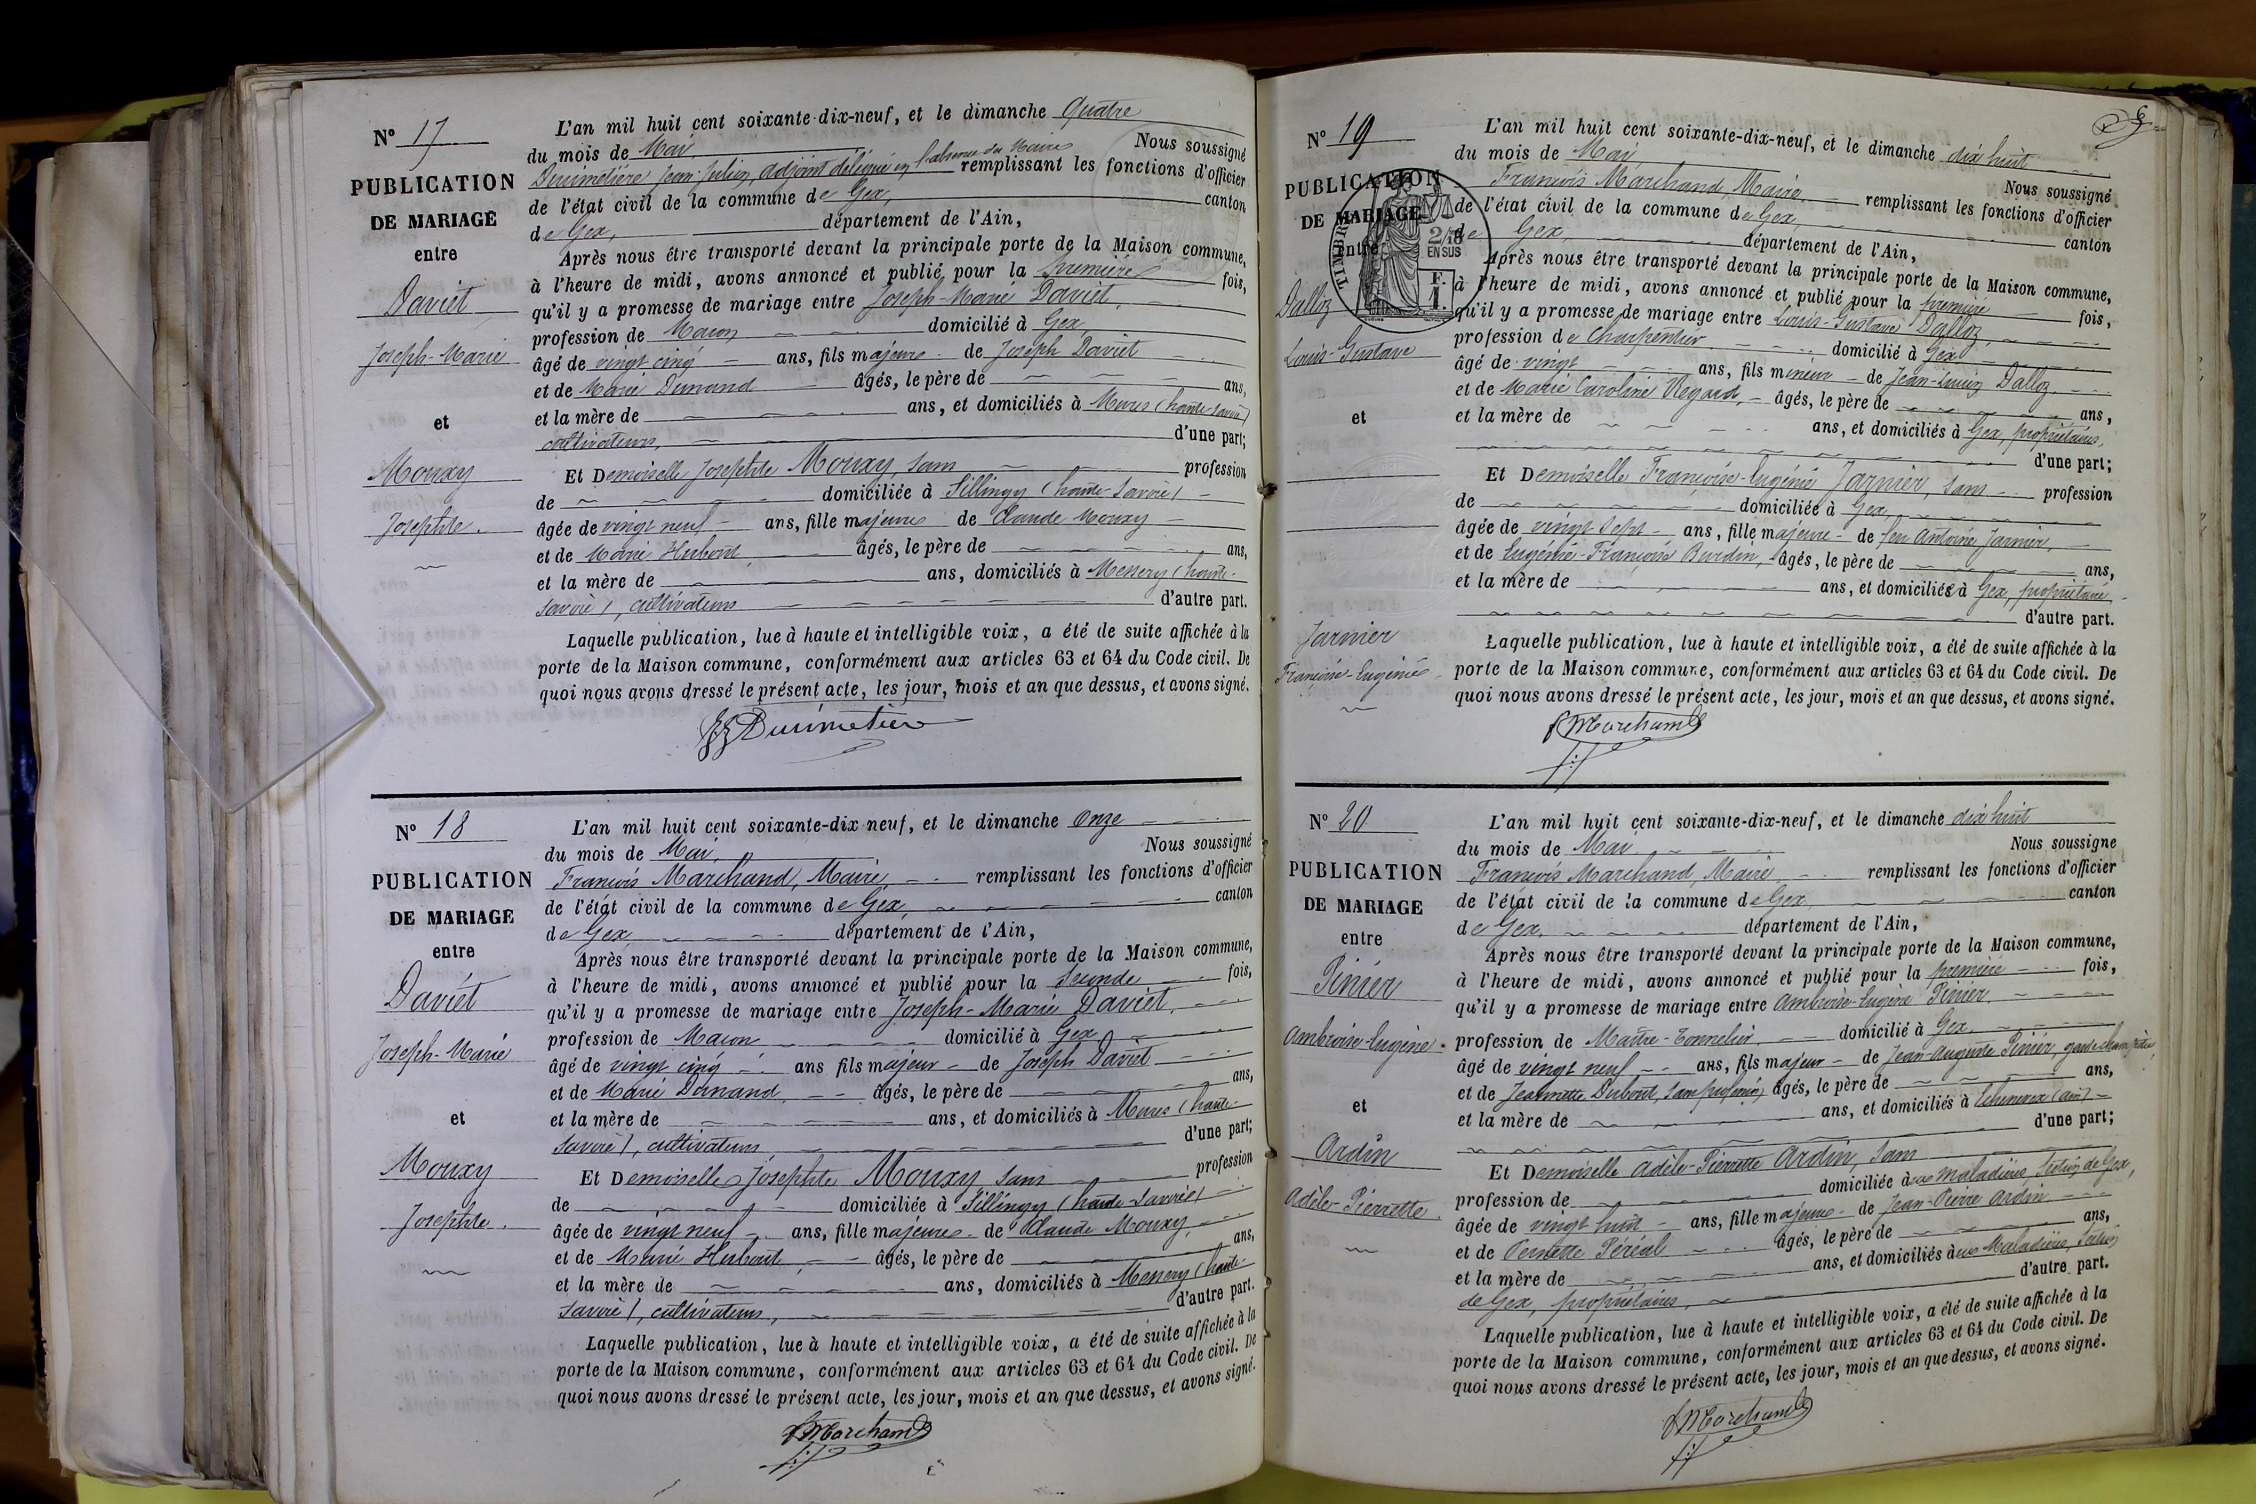 N° 17
PUBLICATION
DE MARIAGE
entre
Daviet
Joseph-Marie
et
Mouxy
Josephte
L'an mil huit cent soixante-dix-neuf, et le dimanche quatre
du mois de Mai Nous soussigné
Duimetière Jean-Julien, adjoint délégué en l'absence du Maire remplissant les fonctions d'officier
de l'état civil de la commune de Gex, canton
de Gex, département de l'Ain,
Après nous être transporté devant la principale porte de la Maison commune,
à l'heure de midi, avons annoncé et publié pour la première fois,
qu'il y a promesse de mariage entre Joseph-Marie Daviet,
profession de Maçon domicilié à Gex
âgé de vingt cinq ans, fils majeur de Joseph Daviet
et de Marie Dunand âgés, le père de ans,
et la mère de ans, et domiciliés à Mures (haute-savoie)
cultivateurs, d'une part;
Et Demoiselle Josephte Mouxy, sans profession
de domiciliée à Sillingy (haute-Savoie)
âgée de vingt neuf ans, fille majeure de Claude Mouxy
et de Marie Hubout âgés, le père de ans,
et la mère de ans, domiciliés à Messery (haute-
savoie), cultivateurs d'autre part.
Laquelle publication, lue à haute et intelligible voix, a été de suite affichée à la
porte de la Maison commune, conformément aux articles 63 et 64 du Code civil. De
quoi nous avons dressé le présent acte, les jour, mois et an que dessus, et avons signé.
Duimetière
N° 18
PUBLICATION
DE MARIAGE
entre
Daviet
Joseph-Marie
et
Mouxy
Josephte
L'an mil huit cent soixante-dix neuf, et le dimanche onze
du mois de Mai, Nous soussigné
François Marchand, Maire remplissant les fonctions d'officier
de l'état civil de la commune de Gex, canton
de Gex département de l'Ain,
Après nous être transporté devant la principale porte de la Maison commune,
à l'heure de midi, avons annoncé et publié pour la seconde fois,
qu'il y a promesse de mariage entre Joseph-Marie Daviet,
profession de Maçon domicilié à Gex
âgé de vingt cinq ans fils majeur de Joseph Daviet
et de Marie Dunand, âgés, le père de ans,
et la mère de ans, et domiciliés à Mures (haute-
savoie), cultivateurs d'une part;
Et Demoiselle Josephte Mouxy, sans profession
de domiciliée à Sillingy (haute-savoie)
âgée de vingt neuf ans, fille majeure de Claude Mouxy,
et de Marie Hubout, âgés, le père de ans,
et la mère de ans, domiciliés à Messery (haute-
savoie), cultivateurs, d'autre part.
Laquelle publication, lue à haute et intelligible voix, a été de suite affichée à la
porte de la Maison commune, conformément aux articles 63 et 64 du Code civil. De
quoi nous avons dressé le présent acte, les jour, mois et an que dessus, et avons signé.
F Marchand
N° 19
PUBLICATION
DE MARIAGE
entre
TIMBRE
2/10
EN SUS
F.
1.
Dalloz
Louis-Gustave
et
Jarnier
Françoise-Eugénie
L'an mil huit cent soixante-dix-neuf, et le dimanche dix huit
du mois de Mai Nous soussigné
François Marchand, Maire remplissant les fonctions d'officier
de l'état civil de la commune de Gex, canton
de Gex, département de l'Ain,
Après nous être transporté devant la principale porte de la Maison commune,
à l'heure de midi, avons annoncé et publié pour la première fois,
qu'il y a promesse de mariage entre Louis-Gustave Dalloz,
profession de Charpentier domicilié à Gex
âgé de vingt ans, fils mineur de Jean-Louis Dalloz
et de Marie Caroline Regard, âgés, le père de ans,
et la mère de ans, et domiciliés à Gex, propriétaires,
d'une part;
Et Demoiselle Françoise-Eugénie Jarnier, sans profession
de domiciliée à Gex,
âgée de vingt sept ans, fille majeure de feu Antoine Jarnier,
et de Eugénie-Françoise Burdin, âgés, le père de ans,
et la mère de ans, et domiciliés à Gex, propriétaire
d'autre part.
Laquelle publication, lue à haute et intelligible voix, a été de suite affichée à la
porte de la Maison commune, conformément aux articles 63 et 64 du Code civil. De
quoi nous avons dressé le présent acte, les jour, mois et an que dessus, et avons signé.
F Marchand
N° 20
PUBLICATION
DE MARIAGE
entre
Pinier
Ambroise-Eugène
et
Ardin
Adèle-Pierrette
L'an mil huit cent soixante-dix-neuf, et le dimanche dix huit
du mois de Mai Nous soussigné
François Marchand, Maire remplissant les fonctions d'officier
de l'état civil de la commune de Gex canton
de Gex, département de l'Ain,
Après nous être transporté devant la principale porte de la Maison commune,
à l'heure de midi, avons annoncé et publié pour la première fois,
qu'il y a promesse de mariage entre Ambroise-Eugène Pinier
profession de Maître-Tonnelier domicilié à Gex
âgé de vingt neuf ans, fils majeur de Jean-Auguste Pinier, garde champêtre,
et de Jeannette Dubout, sans profession, âgés, le père de ans,
et la mère de ans, et domiciliés à Echenevex (ain)
d'une part;
Et Demoiselle Adèle-Pierrette Ardin, sans
profession de domiciliée à aux Maladière, section de Gex,
âgée de vingt huit ans, fille majeure de Jean-Pierre Ardin
et de Pernette Péréal âgés, le père de ans,
et la mère de ans, et domiciliés à aux Maladière, section
de Gex, propriétaires, d'autre part.
Laquelle publication, lue à haute et intelligible voix, a été de suite affichée à la
porte de la Maison commune, conformément aux articles 63 et 64 du Code civil. De
quoi nous avons dressé le présent acte, les jour, mois et an que dessus, et avons signé.
F Marchand